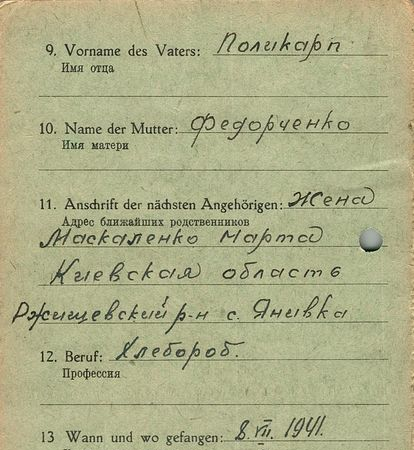 9. Vorname des Vaters: Поликарп
Имя отца
10. Name der Mutter: Федорченко
Имя матери
11. Anschrift der nächsten Angehörigen: Жена
Адрес ближайших родственников
Маскаленко Марта
Киевская область
Ржищевский р-н с. Янивка
12. Beruf: Хлебороб.
Профессия
13 Wann und wo gefangen: 8. VII. 1941.